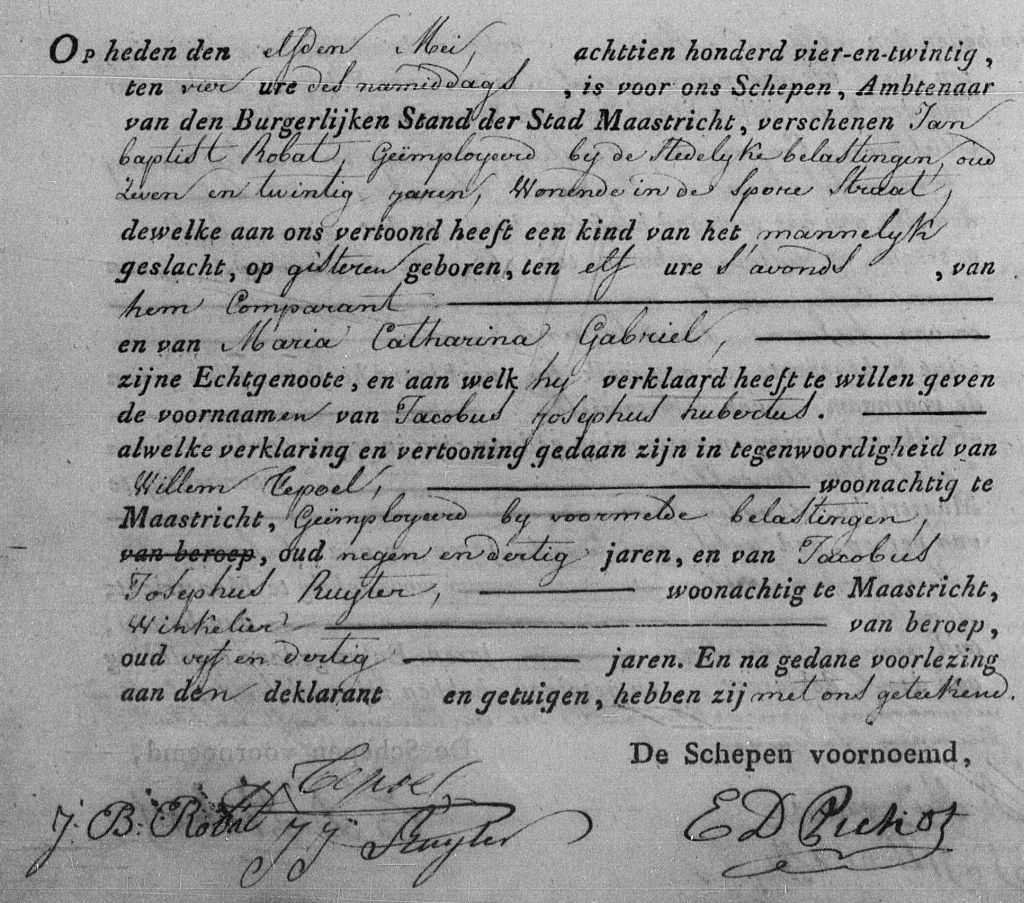 Op heden den elfden Mei, achttien honderd vier-en-twintig,
ten vier ure des namiddags, is voor ons Schepen, Ambtenaar
van den Burgerlijken Stand der Stad Maastricht, verschenen Jan
baptist Robat, Geëmployeerd by de stedelyke belastingen, oud
zeven en twintig jaren, Wonende in de Spore Straat,
dewelke aan ons vertoond heeft een kind van het mannelyk
geslacht, op gisteren geboren, ten elf ure s'avonds, van
hem Comparant
en van Maria Catharina Gabriel,
zijne Echtgenoote, en aan welk hy verklaard heeft te willen geven
de voornaamen van Jacobus Josephus hubertus.
alwelke verklaring en vertooning gedaan zijn in tegenwoordigheid van
Willem Tepoel, woonachtig te
Maastricht, Geëmployeerd by voormelde belastingen,
van beroep, oud negen en dertig jaren, en van Jacobus
Josephus Ruyter, woonachtig te Maastricht,
Winkelier van beroep,
oud vyf en dertig jaren. En na gedane voorlezing
aan den deklarant en getuigen, hebben zij met ons geteekend.
De Schepen voornoemd,
Tepoel
J. B. Robat
J J Ruyter
E D Pichot